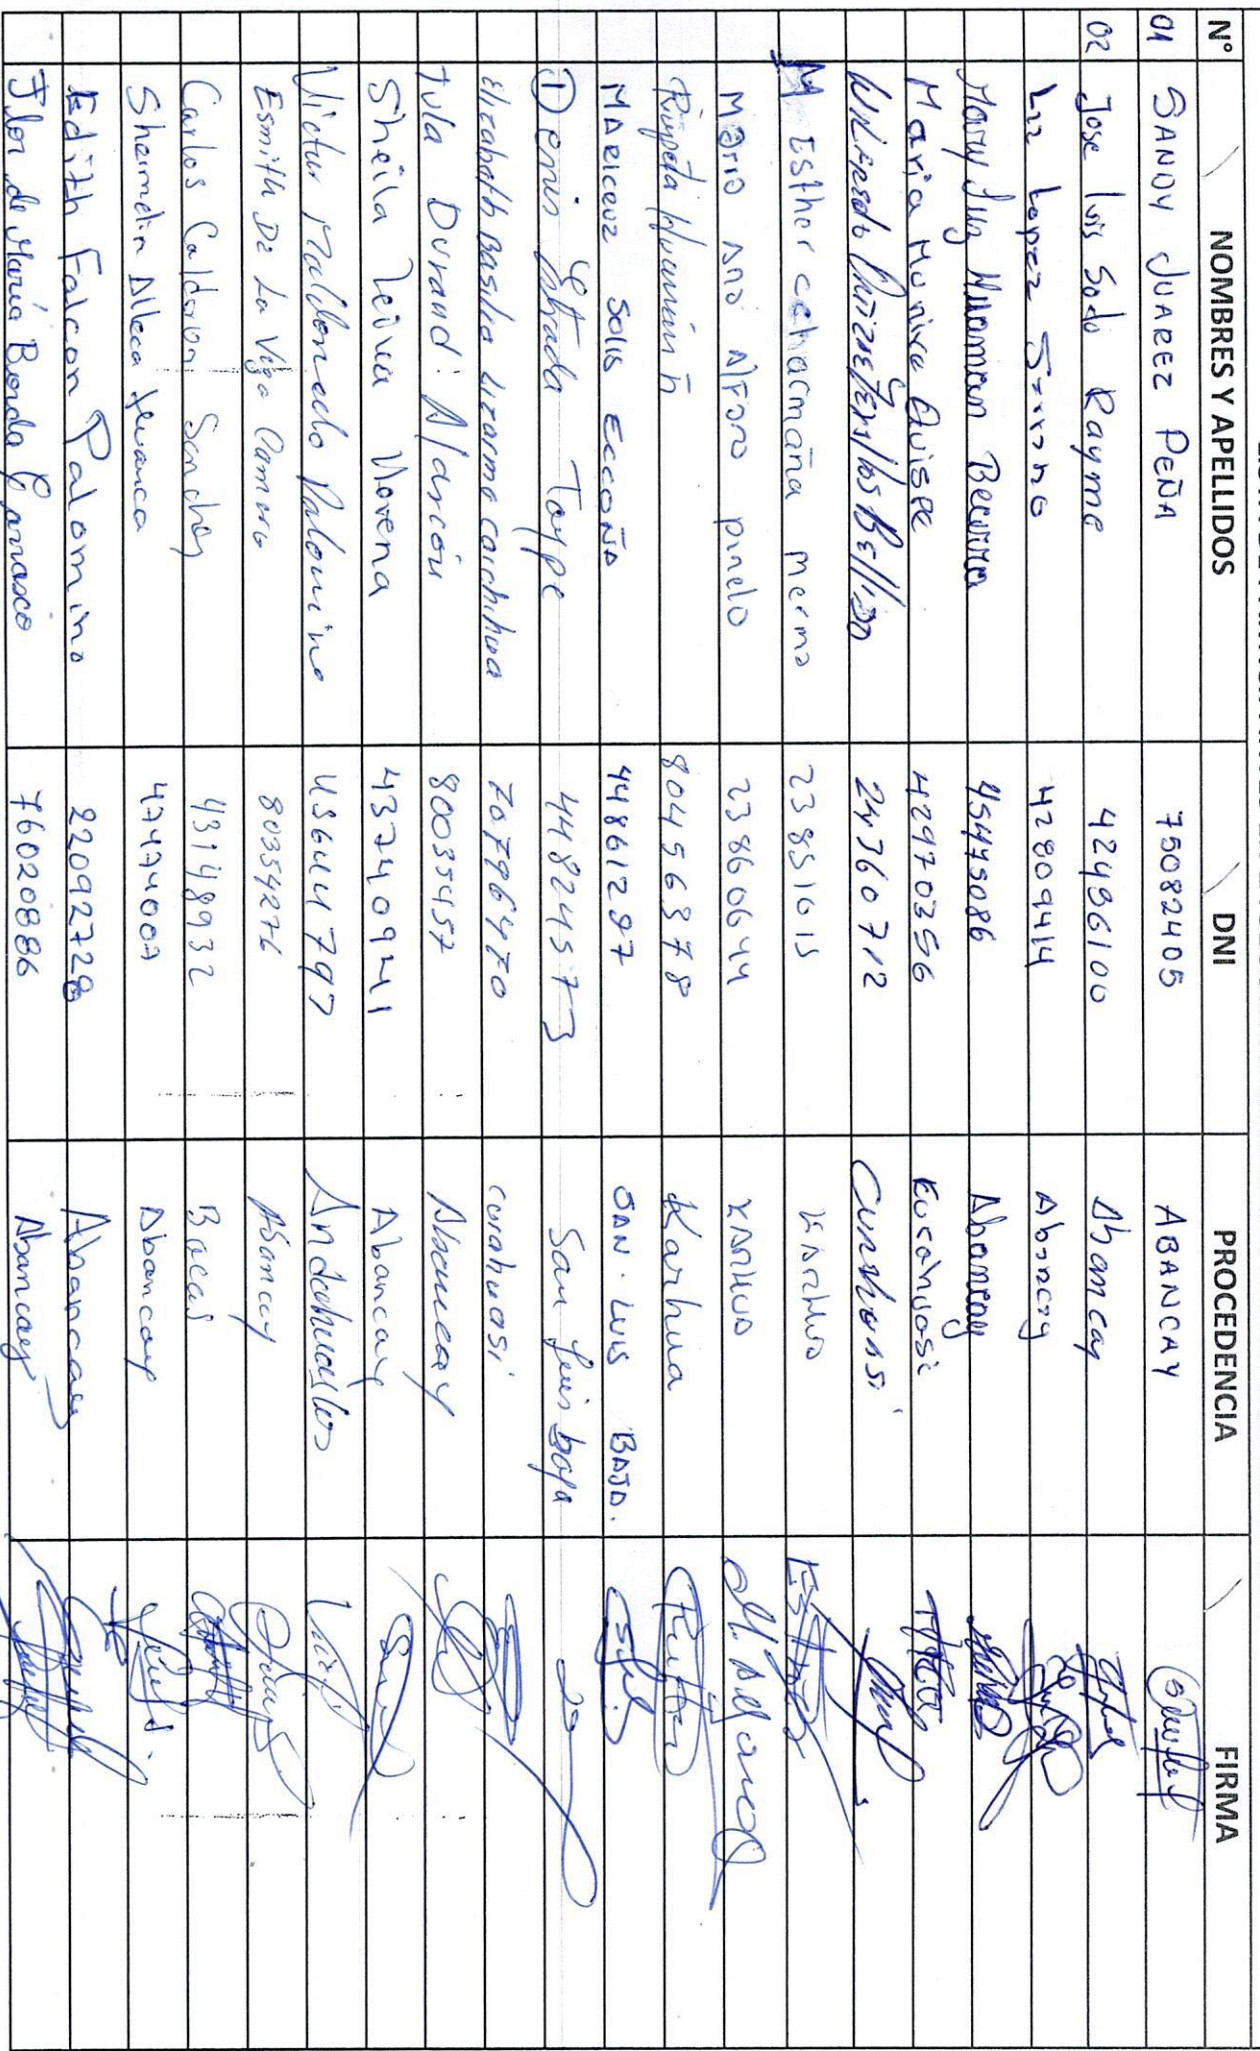 N° NOMBRES Y APELLIDOS DNI PROCEDENCIA FIRMA
01 SANDY JUAREZ PEÑA 75082405 ABANCAY
02 Jose luis Soto Rayme 42496100 Abancay
Luz Lopez Serrano 42809414 Abancay
Mary Luz Huaman Becerra 45475086 Abancay
Maria Munive Quispe 42970356 Curahuasi
24360712 Curahuasi
M Esther ccharmaña merma 23851015 Karhua
Mario Ano Alfaro pinelo 23860644 KARHUA
Huamán 80456378 Karhua
MARICRUZ SOLIS ECCOÑA 44861297 SAN. LUIS BAJO.
Denis Estrada Taype 44824573 San Luis baja
Elizabeth Basilio Lizarme carchihua 70796470 curahuasi
Tula Durand Alarcón 80035457 Abancay
Sheila Leiva Morena 43740941 Abancay
Victor Maldonado Palomino Andahuaylas
Esmith De La Vega Camero 80354276 Abancay
Carlos Calderon Sanchez 43148932
Sheimelin Allcca Huanca 47474007 Abancay
Edith Falcon Palomino 22092728 Abancay
Flor de María Borda Carrasco 76020886 Abancay